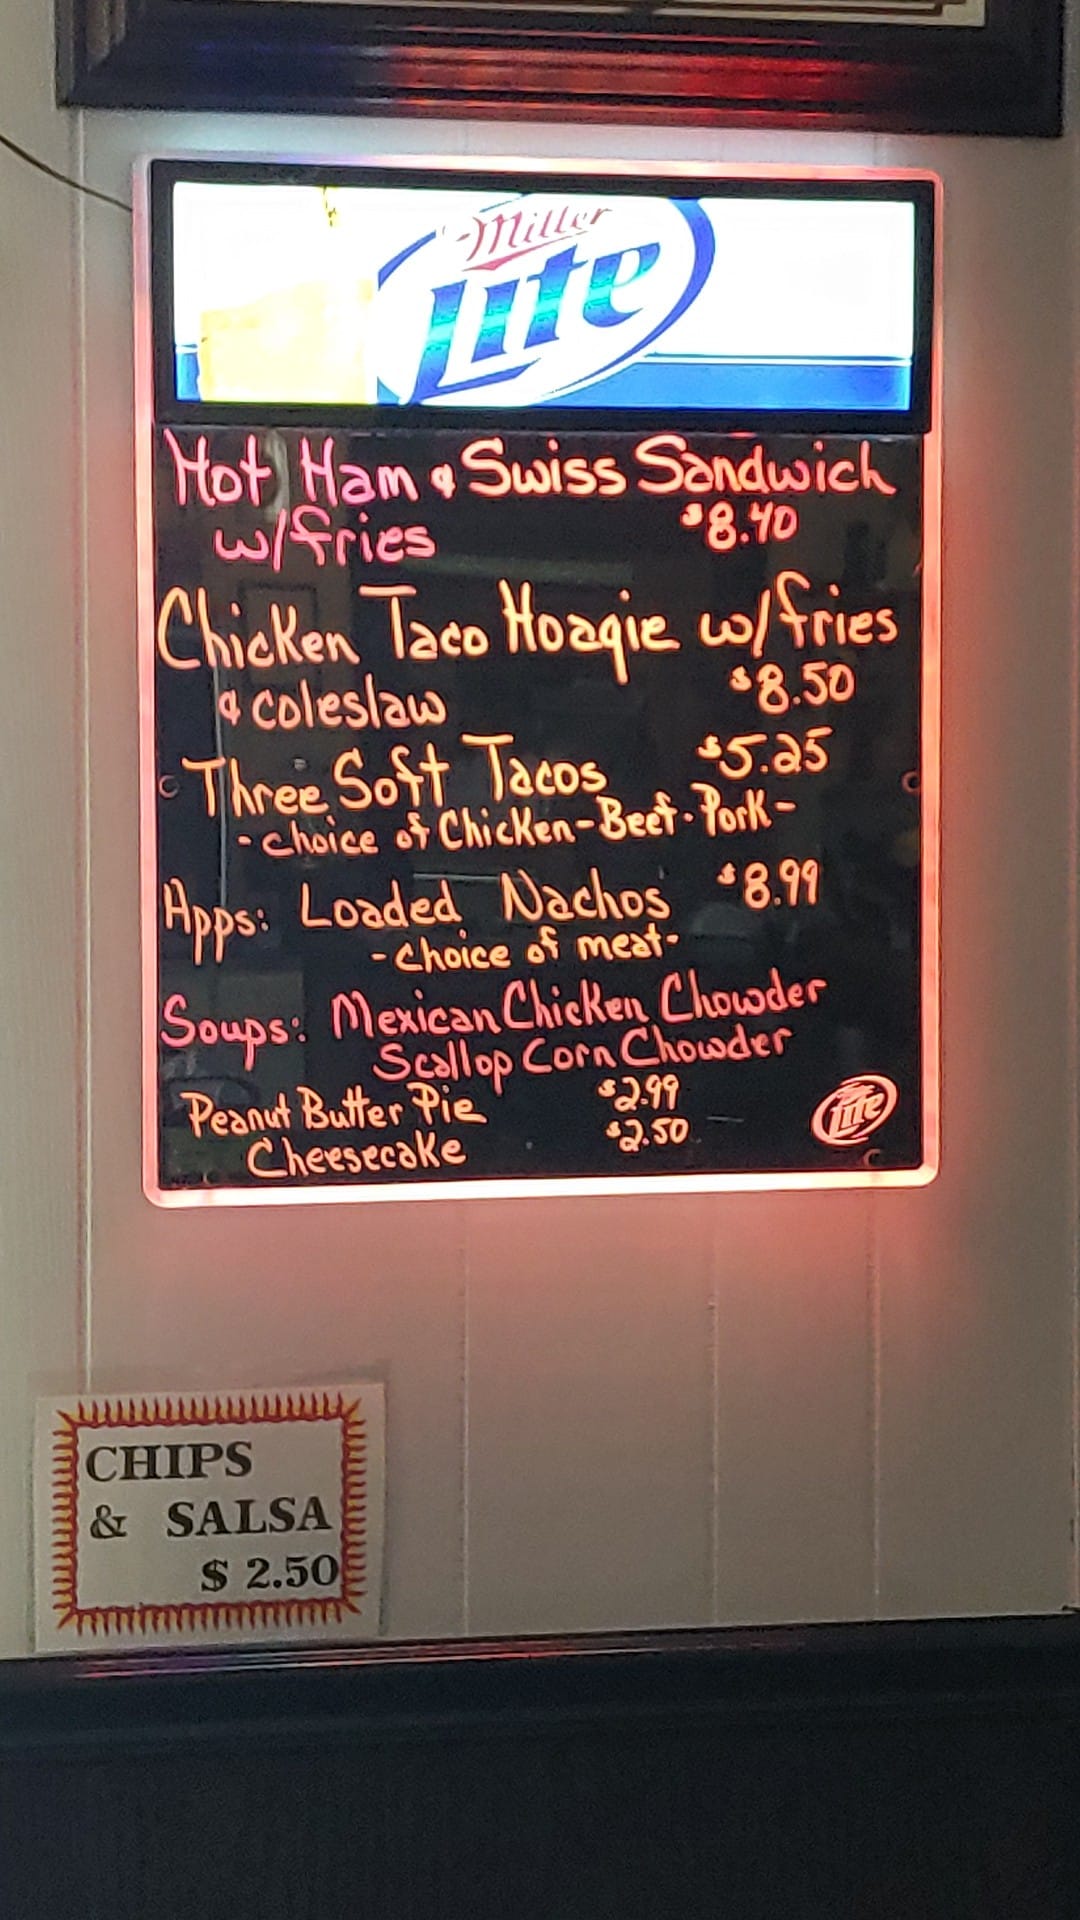 Miller
Lite
Hot Ham & Swiss Sandwich
w/fries $8.40
Chicken Taco Hoagie w/fries
& coleslaw $8.50
Three Soft Tacos $5.25
-choice of Chicken-Beef-Pork-
Apps: Loaded Nachos $8.99
-choice of meat-
Soups: Mexican Chicken Chowder
Scallop Corn Chowder
Peanut Butter Pie $2.99
Cheesecake $2.50
Lite
CHIPS
& SALSA
$ 2.50